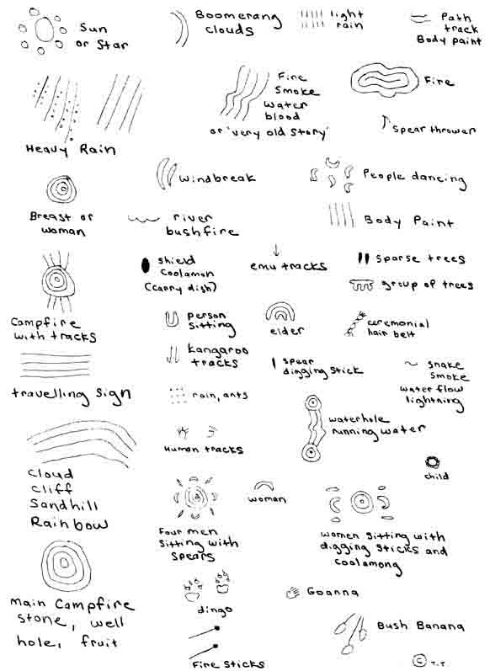 Sun
or Star
Boomerang
clouds
light
rain
Path
track
Body paint
Heavy Rain
Fire
Smoke
water
blood
or 'very old story'
Fire
Spear thrower
Windbreak
People dancing
Breast or
woman
river
bushfire
Body Paint
Shield
Coolamon
(carry dish)
emu tracks
sparse trees
group of trees
Campfire
with tracks
person
sitting
elder
ceremonial
hair belt
kangaroo
tracks
spear
digging stick
snake
smoke
water flow
lightning
travelling sign
rain, ants
waterhole
running water
Human tracks
child
Cloud
Cliff
Sandhill
Rainbow
woman
Four men
sitting with
spears
women sitting with
digging sticks and
coolamong
Main Campfire
stone, well
hole, fruit
dingo
Goanna
Bush Banana
Fire sticks
© T.T.